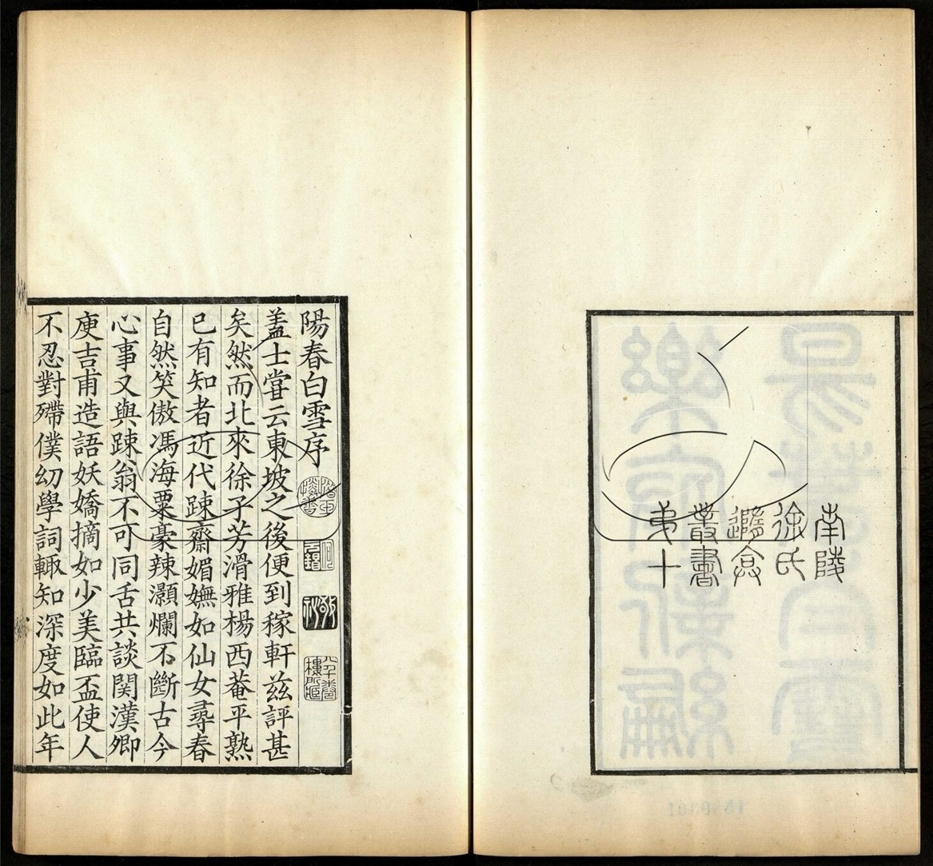 南陵
徐氏
隨盦
叢書
弟十
陽春白雪序
蓋士甞云東坡之後便到稼軒茲評甚
矣然而北來徐子芳滑雅楊西菴平熟
已有知者近代踈齋媚嫵如仙女尋春
自然笑傲馮海粟豪辣灝爛不斷古今
心事又與踈翁不可同舌共談関漢卿
庾吉甫造語妖嬌摘如少美臨盃使人
不忍對殢僕幻學詞輙知深度如此年